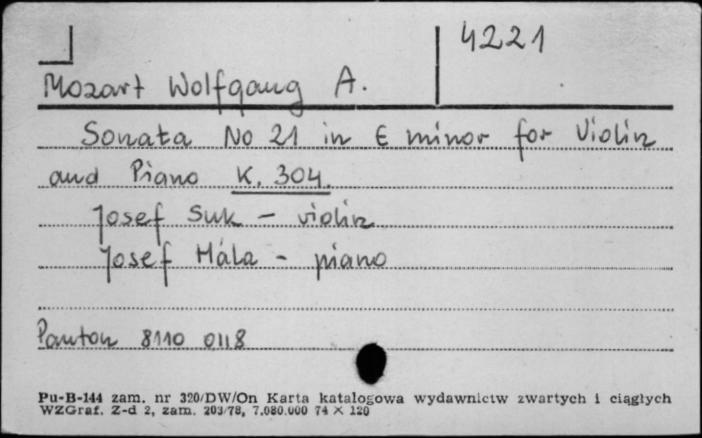 4221
Mozart Wolfgang A.
Sonata No 21 in E minor for Violin
and Piano K. 304.
Josef Suk - violin
Josef Hála - piano
Panton 8110 0118
Pu-B-144 zam. nr 320/DW/On Karta katalogowa wydawnictw zwartych i ciągłych
WZGraf. Z-d 2, zam. 203/78, 7.080.000 74 × 120